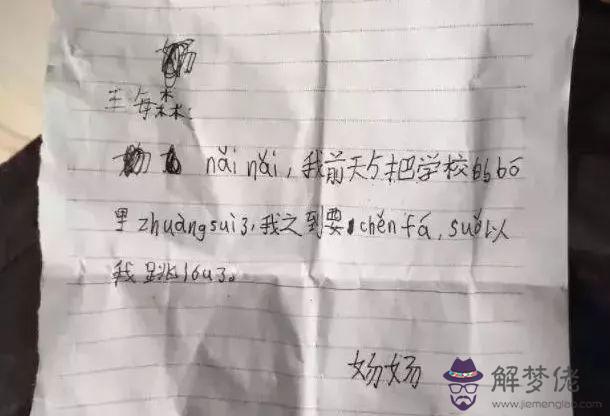 王每森:
nǎi nǎi，我前天与把学校的bō
里zhuàngsuì3，我之到要chěnfá，suǒ以
我跳lóu3。
妨妨
解梦佬
www.jiemenglao.com